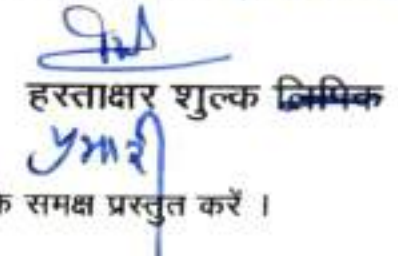 हस्ताक्षर शुल्क लिपिक
प्रभारी
के समक्ष प्रस्तुत करें ।